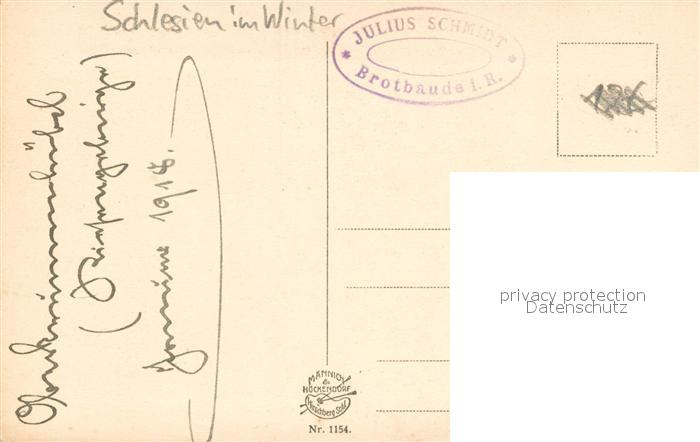 Schlesien im Winter
JULIUS SCHMIDT
* Brotbaude i. R. *
(Riesengebirge)
1918.
privacy protection
Datenschutz
MÄNNICH
&
HÖCKENDORF
Hirschberg Schl.
Nr. 1154.